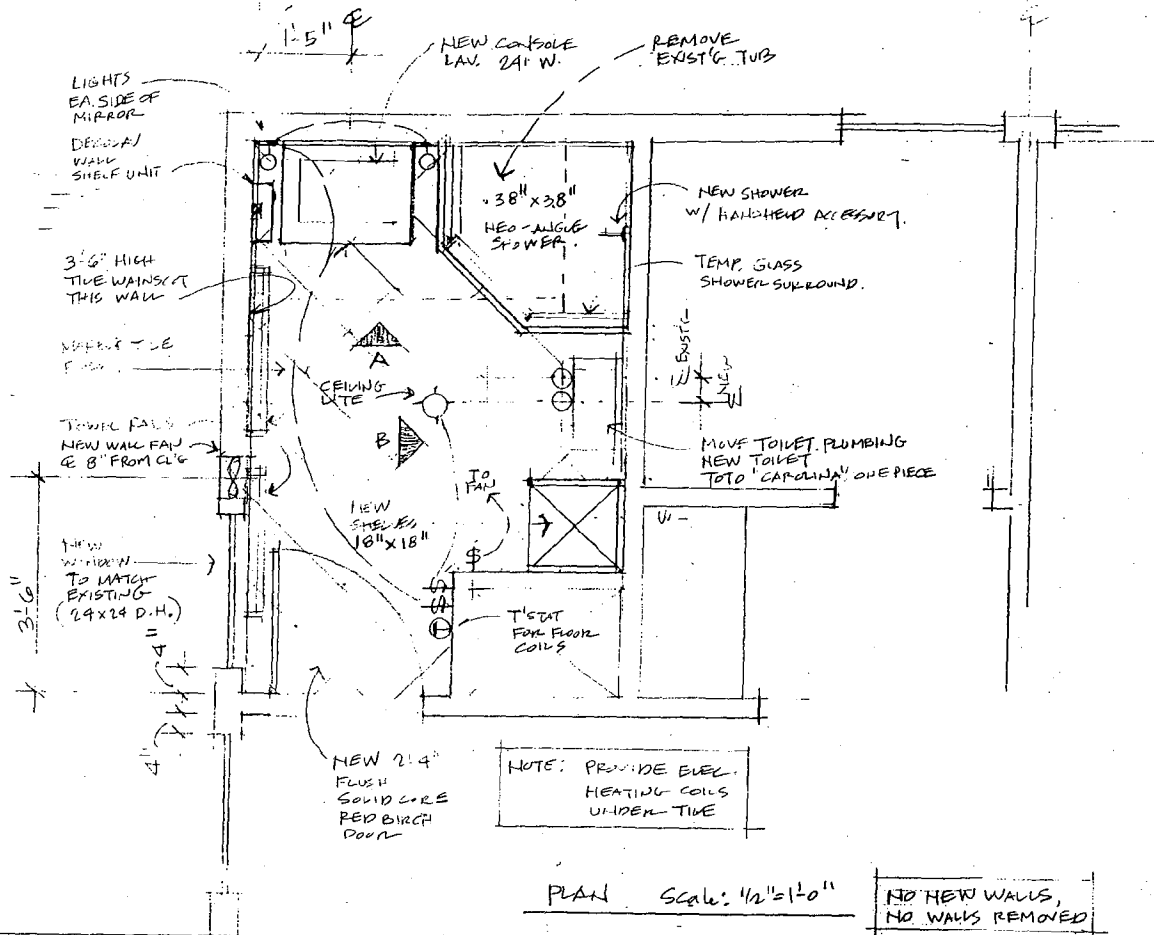 1'-5" ℄
NEW CONSOLE
LAV. 24" W.
REMOVE
EXIST'G TUB
LIGHTS
EA. SIDE OF
MIRROR
WALL
SHELF UNIT
38" x 38"
NEO-ANGLE
SHOWER
NEW SHOWER
W/ HANDHELD ACCESSORY.
3'-6" HIGH
TILE WAINSCOT
THIS WALL
TEMP. GLASS
SHOWER SURROUND.
℄ EXIST'G
℄ NEW
A
TILE
CEILING
LITE
B
NEW WALL FAN
℄ 8" FROM CL'G
MOVE TOILET PLUMBING
NEW TOILET
TOTO "CAROLINA" ONE PIECE
TO
FAN
NEW
SHELVES
18" x 18"
$
$
$
T
NEW
WINDOW
TO MATCH
EXISTING
(24x24 D.H.)
3'-6"
4"
4"
T'STAT
FOR FLOOR
COILS
NEW 2'4"
FLUSH
SOLID CORE
RED BIRCH
DOOR
NOTE: PROVIDE ELEC.
HEATING COILS
UNDER TILE
PLAN Scale: 1/2"=1'-0"
NO NEW WALLS,
NO WALLS REMOVED